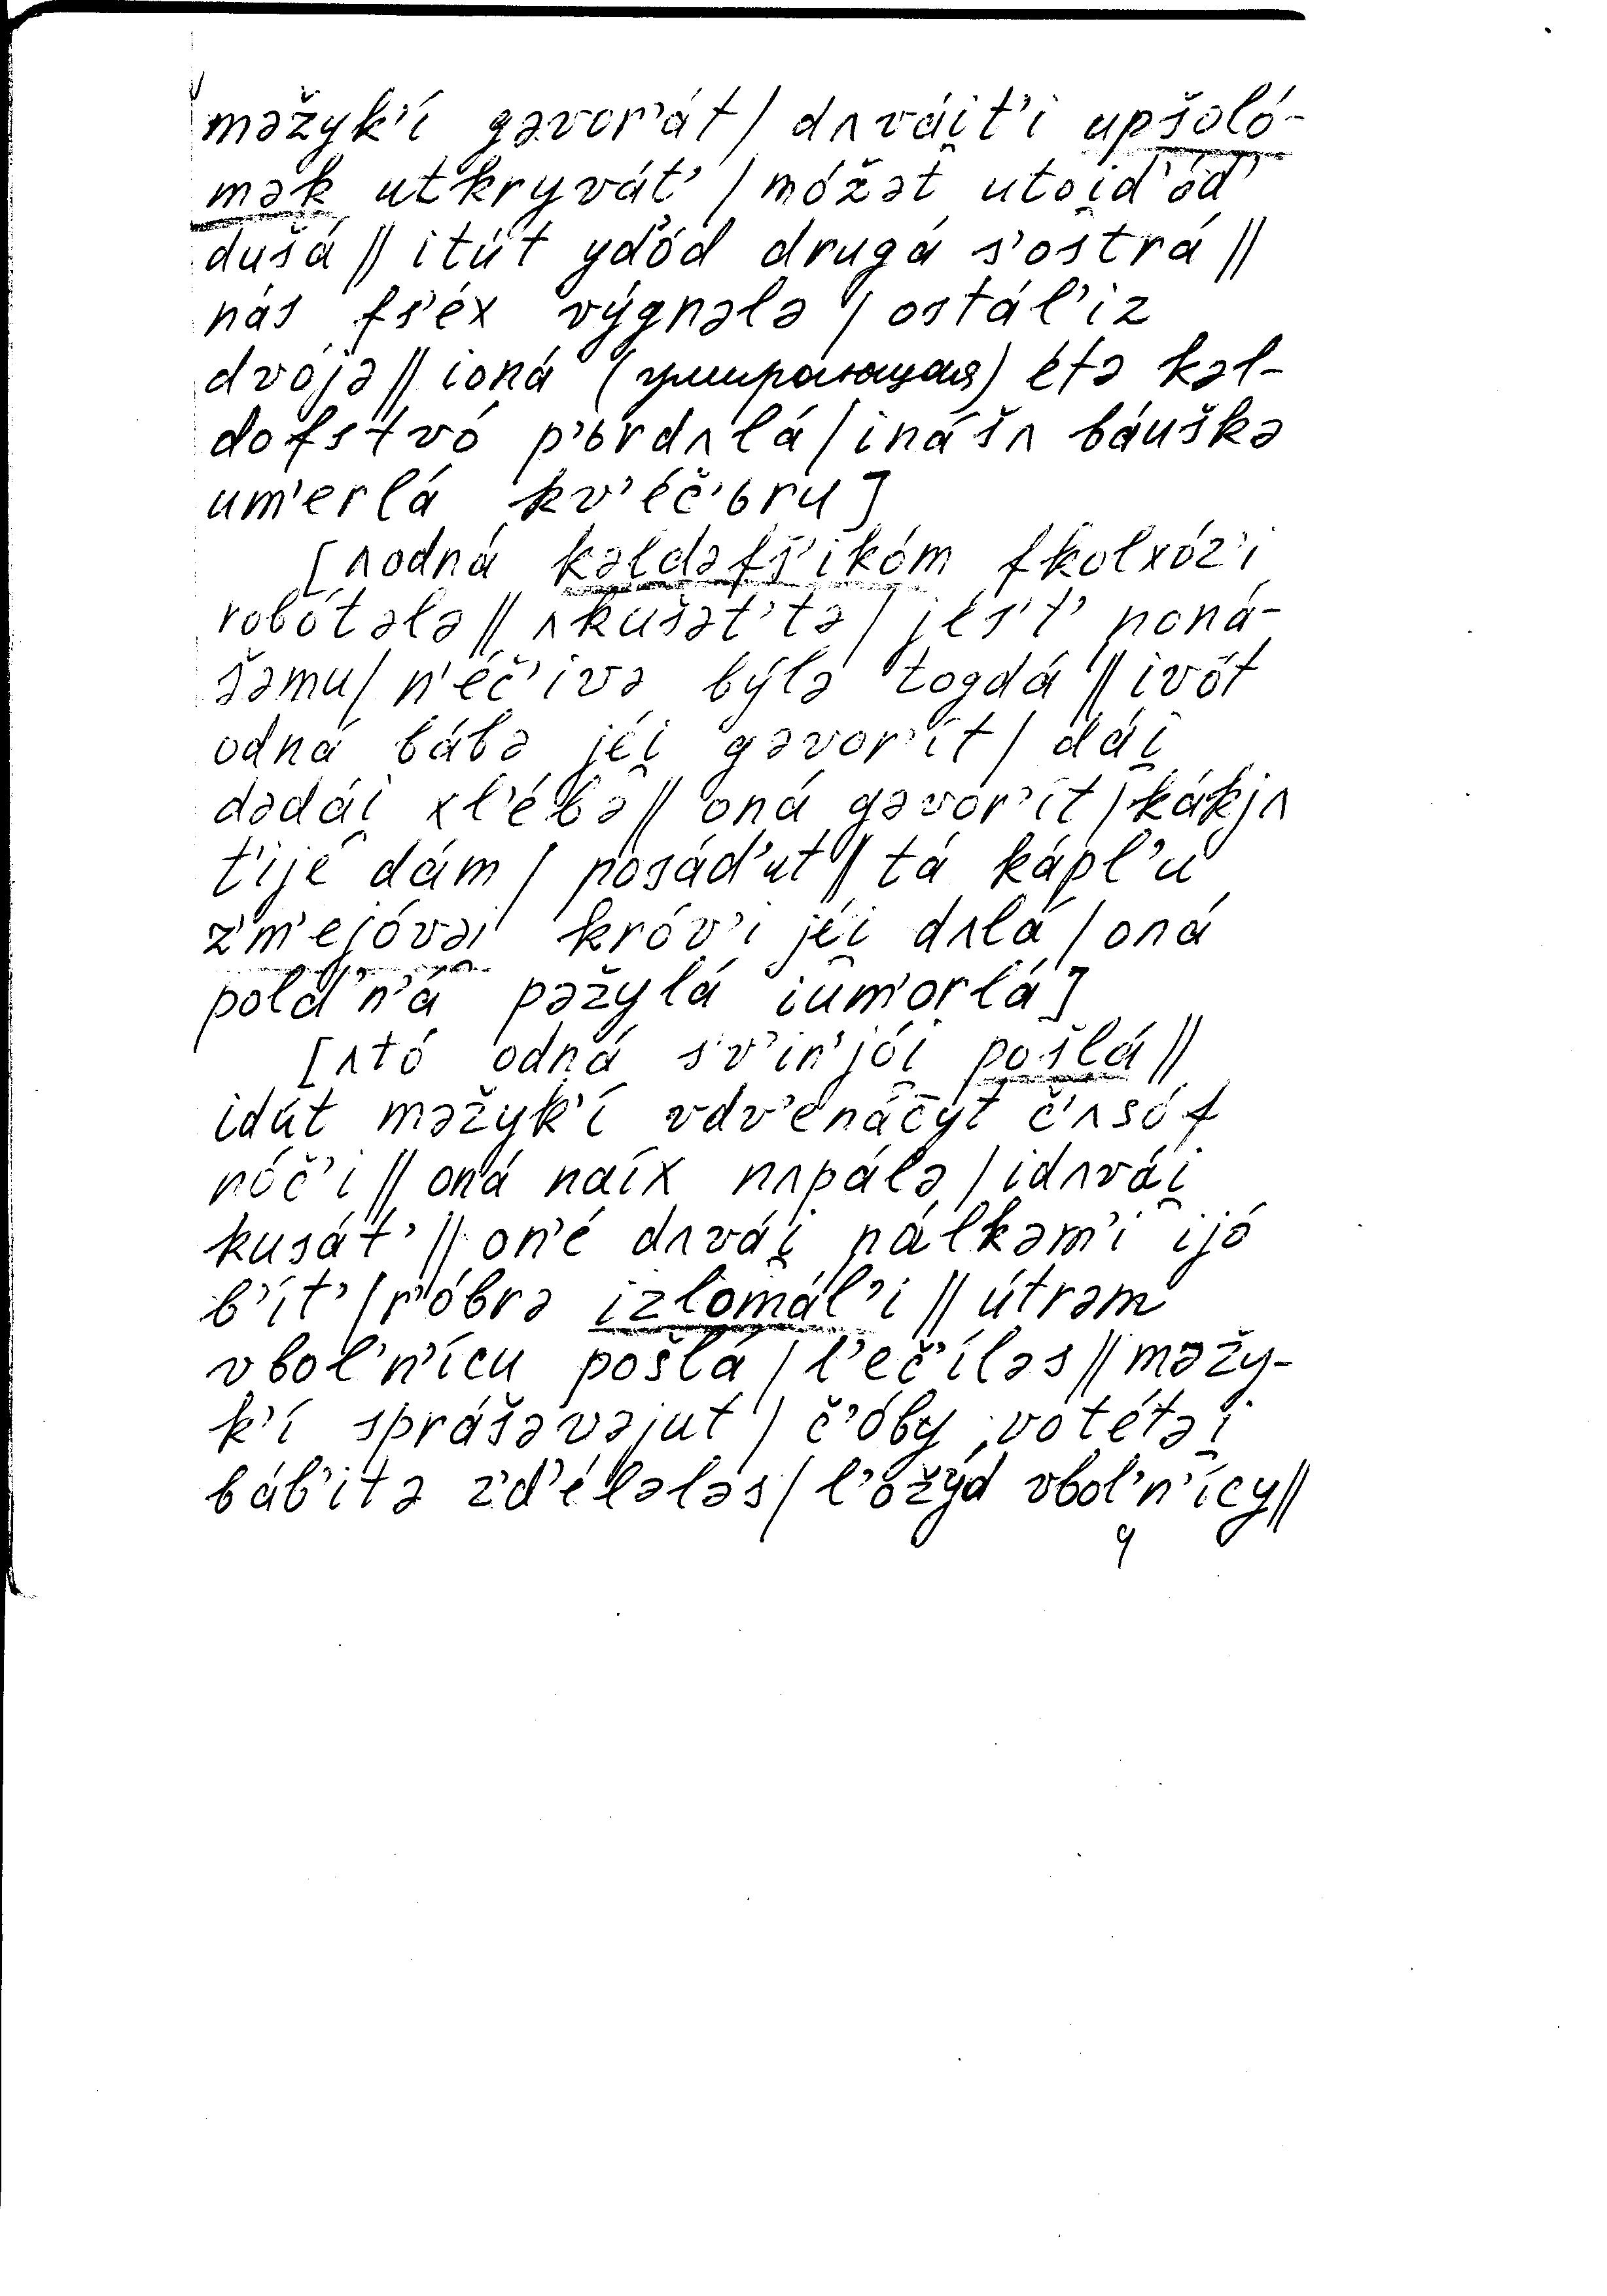 məžyk’í gəvor’át / dʌvái̯t’i upšoló-
mək utkryvát’ / móžət utoi̯d’ód’
dušá // itút yd’ód drugá s’ostrá //
nás fs’éx výgnələ / ostál’iz
dvójə // ioná (умирающая) étə kəl-
dofstvó p’ьrdʌlá / inášʌ báuškə
um’erlá kv’éč’ьru]
[ʌodná kəldəfš’ikóm fkolxóz’i
robótələ // ʌkušət’tə / jés’t’ poná-
šəmu / n’éč’ivə býlə togdá // ivót
odná bábə jéi̯ gəvor’ít / dái̯
dədái̯ xl’ébə // oná gəvor’ít / kákjʌ
t’ijé dám / posád’ut // tá kápl’u
z’m’ejóvəi̯ króv’i jéi̯ dʌlá / oná
pold’n’á pəžylá ium’orlá]
[ʌtó odná s’v’in’jói̯ pošlá //
idút məžyk’í vdv’enácyt č’ʌsóf
nóč’i // oná naíx nʌpálə / idʌvái̯
kusát’ // on’é dʌvái̯ pálkəm’i ijó
b’ít’ / r’óbrə izlomál’i // útrəm
vbol’n’ícu pošlá / l’eč’íləs // məžy-
k’í sprášəvəjut / č’óby votétəi̯
báb’itə z’d’élələs / l’ožýd vbol’n’ícy //
9